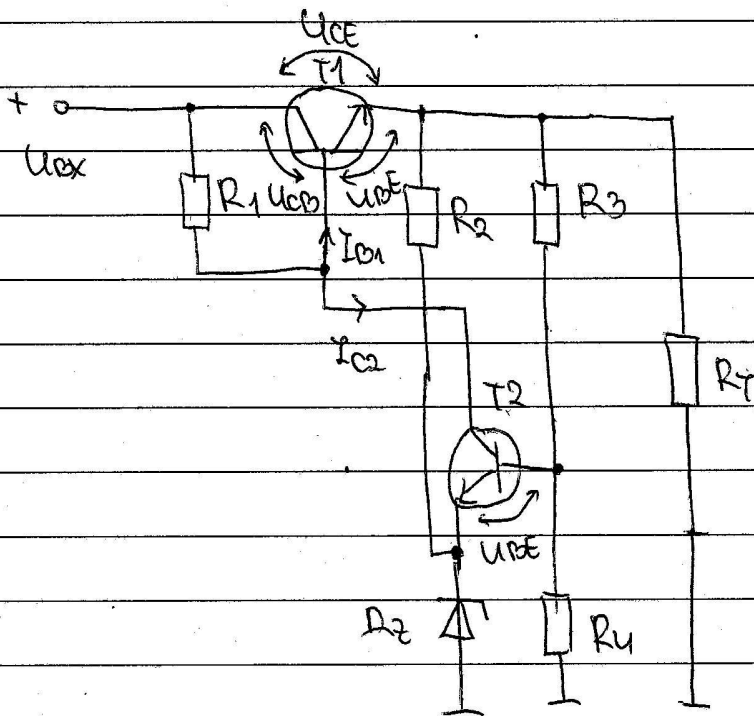 UCE
T1
+
UBX
R1
UCB
UBE
R2
R3
IB1
IC2
RT
T2
UBE
DZ
R4